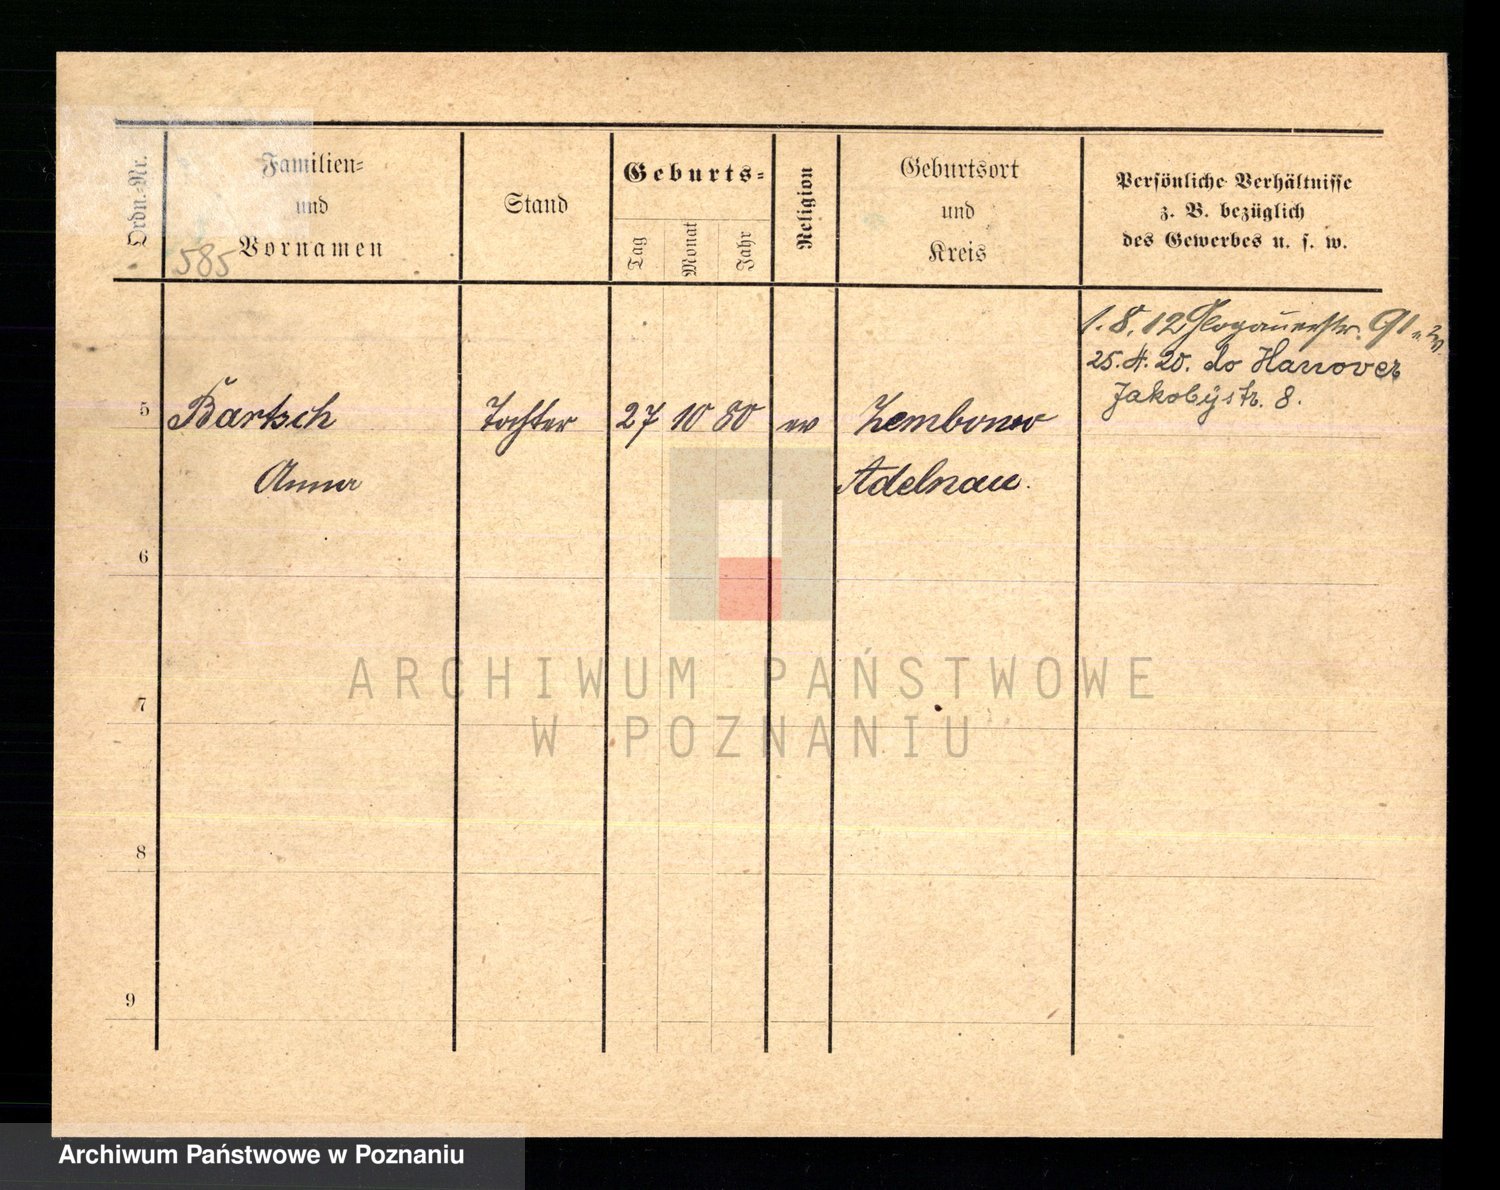 Ordn.-Nr.
Familien-
und
Vornamen
585
Stand
Geburts-
Tag
Monat
Jahr
Religion
Geburtsort
und
Kreis
Persönliche Verhältnisse
z. B. bezüglich
des Gewerbes u. s. w.
1. 8. 12 Glogauerstr. 91
25. 4. 20. do Hannover
Jakobystr. 8.
5 Bartsch Tochter 27 10 80 ev Zembonwo
Anna Adelnau.
6
7
8
9
ARCHIWUM PAŃSTWOWE
W POZNANIU
Archiwum Państwowe w Poznaniu